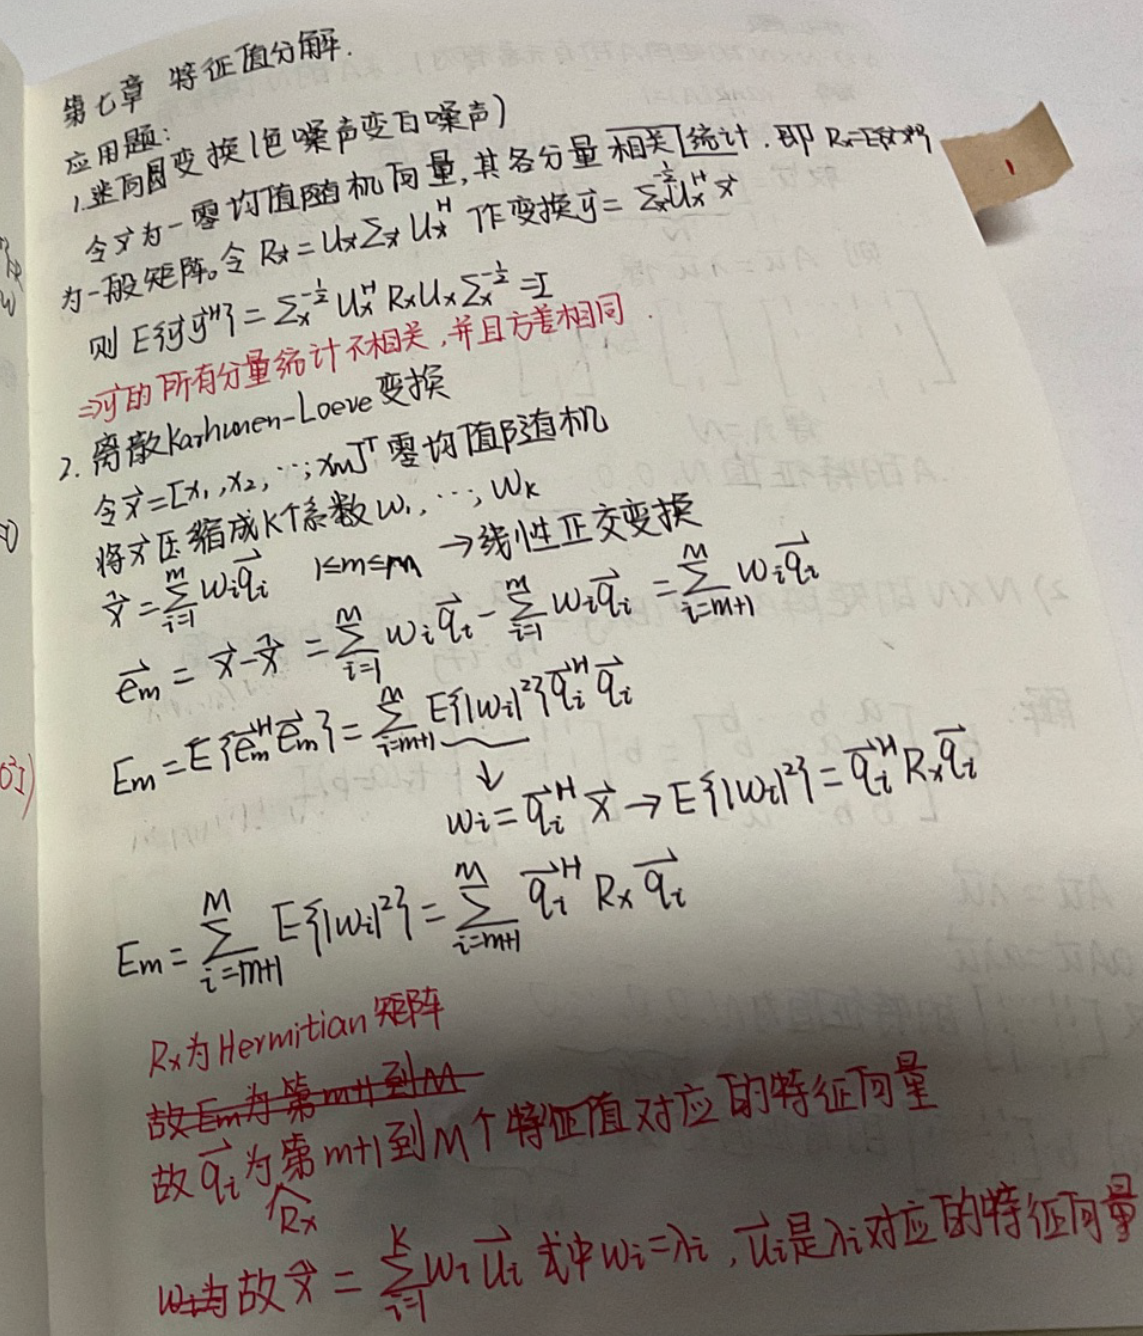 第七章 特征值分解.
应用题:
1.迷向圆变换(色噪声变白噪声)
令x⃗为一零均值随机向量,其各分量相关[统计.即 Rx=E{x⃗x⃗ᴴ}
为一般矩阵。令 Rx=UxΣxUxᴴ 作变换y⃗=Σx^(-1/2)Uxᴴx⃗
则 E{y⃗y⃗ᴴ}=Σx^(-1/2)UxᴴRxUxΣx^(-1/2)=I
⇒y⃗的所有分量统计不相关,并且方差相同.
2.离散Karhunen-Loeve变换
令x⃗=[x₁,x₂,…,xm]ᵀ零均值随机
将x⃗压缩成K个系数w₁,…,wK
x̂=∑_{i=1}^{m}wᵢq⃗ᵢ 1≤m≤M →线性正交变换
e⃗m=x⃗-x̂=∑_{i=1}^{M}wᵢq⃗ᵢ-∑_{i=1}^{m}wᵢq⃗ᵢ=∑_{i=m+1}^{M}wᵢq⃗ᵢ
Em=E{e⃗mᴴe⃗m}=∑_{i=m+1}^{M}E{|wᵢ|²}q⃗ᵢᴴq⃗ᵢ
↓
wᵢ=q⃗ᵢᴴx⃗→E{|wᵢ|²}=q⃗ᵢᴴRxq⃗ᵢ
Em=∑_{i=m+1}^{M}E{|wᵢ|²}=∑_{i=m+1}^{M}q⃗ᵢᴴRxq⃗ᵢ
Rx为Hermitian矩阵
故Em为第m+1到M
故q⃗ᵢ为第m+1到M个特征值对应的特征向量
Rx
wᵢ为故x̂=∑_{i=1}^{K}wᵢu⃗ᵢ 式中wᵢ=λᵢ,u⃗ᵢ是λᵢ对应的特征向量